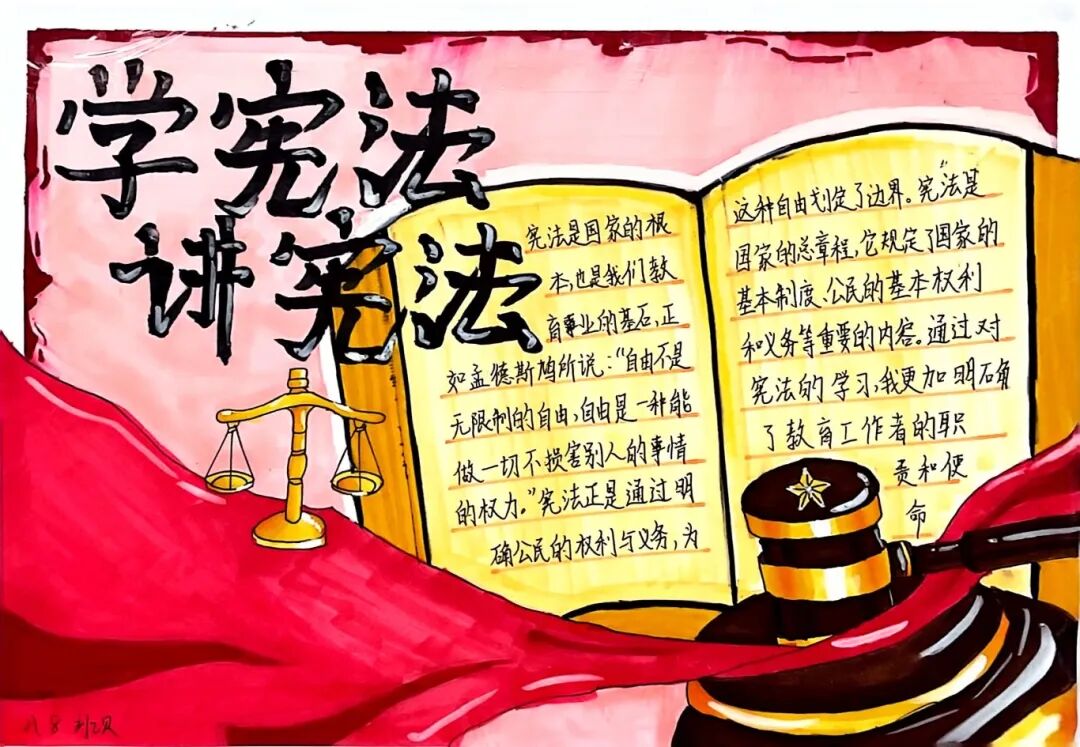 学宪法
讲宪法
宪法是国家的根
本,也是我们教
育事业的基石,正
如孟德斯鸠所说:“自由不是
无限制的自由,自由是一种能
做一切不损害别人的事情
的权力。”宪法正是通过明
确公民的权利与义务,为
这种自由划定了边界。宪”法是
国家的总章程,它规定了国家的
基本制度、公民的基本权利
和义务等重要的内容。通过对
宪法的学习,我更加明确
了教育工作者的职
责和使
命